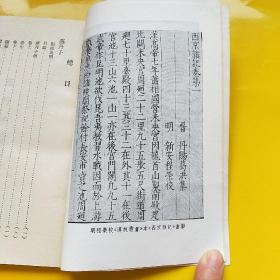 西京雜記卷第一
晉 丹陽葛洪集
明 新安程榮校
漢高帝七年蕭相國營未央宮因龍首山製前殿建
北闕未央宮周迴二十二里九十五步五尺街道周
迴七十里臺殿四十三其三十二在外其十一在後
宮池十三山六池一山一亦在後宮門闥凡九十五
武帝作昆明池欲伐昆吾夷教習水戰因而於上游
戲養魚魚給諸陵廟祭祀餘付長安市賣之池周迴
總目
燕丹子